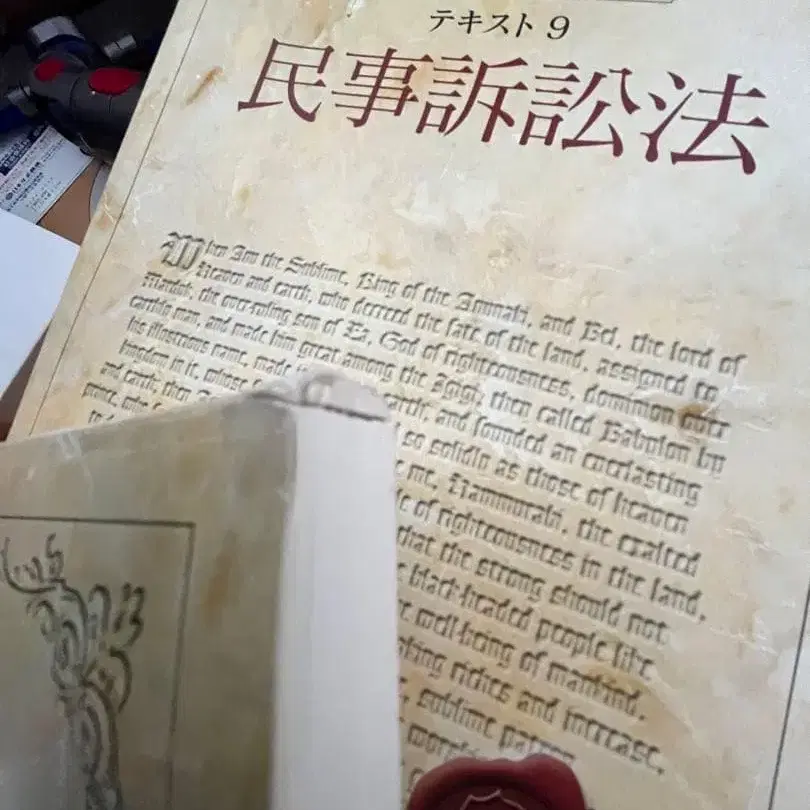 テキスト 9
民事訴訟法
When Anu the Sublime, King of the Anunaki, and Bel, the lord of
Heaven and earth, who decreed the fate of the land, assigned to
Marduk, the over-ruling son of Ea, God of righteousness, dominion over
earthly man, and made him great among the Igigi, they called Babylon by
his illustrious name, made earth, and founded an everlasting
kingdom in it, whose so solidly as those of heaven
and earth; then me, Hammurabi, the exalted
prince, who of righteousness in the land,
that the strong should not
black-headed people like
well-being of mankind.
making riches and increase,
sublime patron